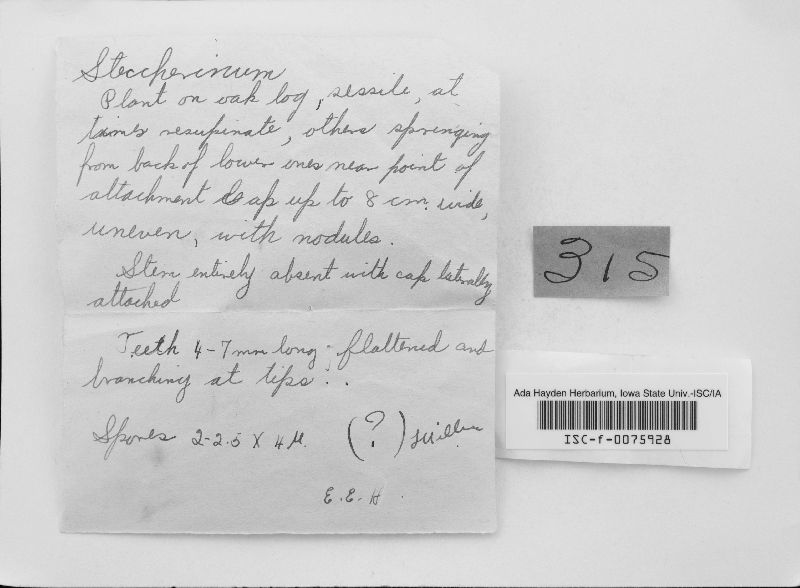 Steccherinum
Plant on oak log, sessile, at
times resupinate, others springing
from back of lower ones near point of
attachment Cap up to 8 cm. wide,
uneven, with nodules.
Stem entirely absent with cap laterally
attached
Teeth 4-7mm long - flattened and
branching at tips..
Spores 2-2.5 X 4 µ. (?)
E.E.H.
315
Ada Hayden Herbarium, Iowa State Univ.-ISC/IA
ISC-f-0075928